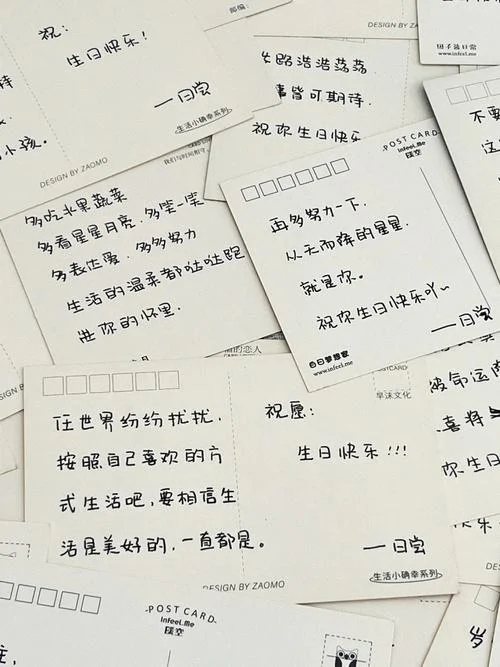 祝:
生日快乐!
一日尝
生活小确幸系列
小孩。
DESIGN BY ZAOMO
邮编:
DESIGN BY ZAO
路浩浩荡荡
事皆可期待.
祝你生日快乐
团子酱日常
www.infeel.me
不要
这
多吃水果蔬菜
多看星星月亮.多笑一笑
多表达爱.多多努力
生活的温柔都哒哒跑
进你的怀里.
POST CARD
Infeel.Me
再多努力一下.
从天而降的星星.
就是你.
祝你生日快乐吖~
一日尝
白日梦想家
www.infeel.me
的恋人
POSTCARD
早沫文化
任世界纷纷扰扰.
按照自己喜欢的方
式生活吧,要相信生
活是美好的,一直都是。
祝愿:
生日快乐!!!
一日尝
生活小确幸系列
DESIGN BY ZAOMO
被命运
喜料
你生日
快乐
POST CARD
Infeel.Me
岁